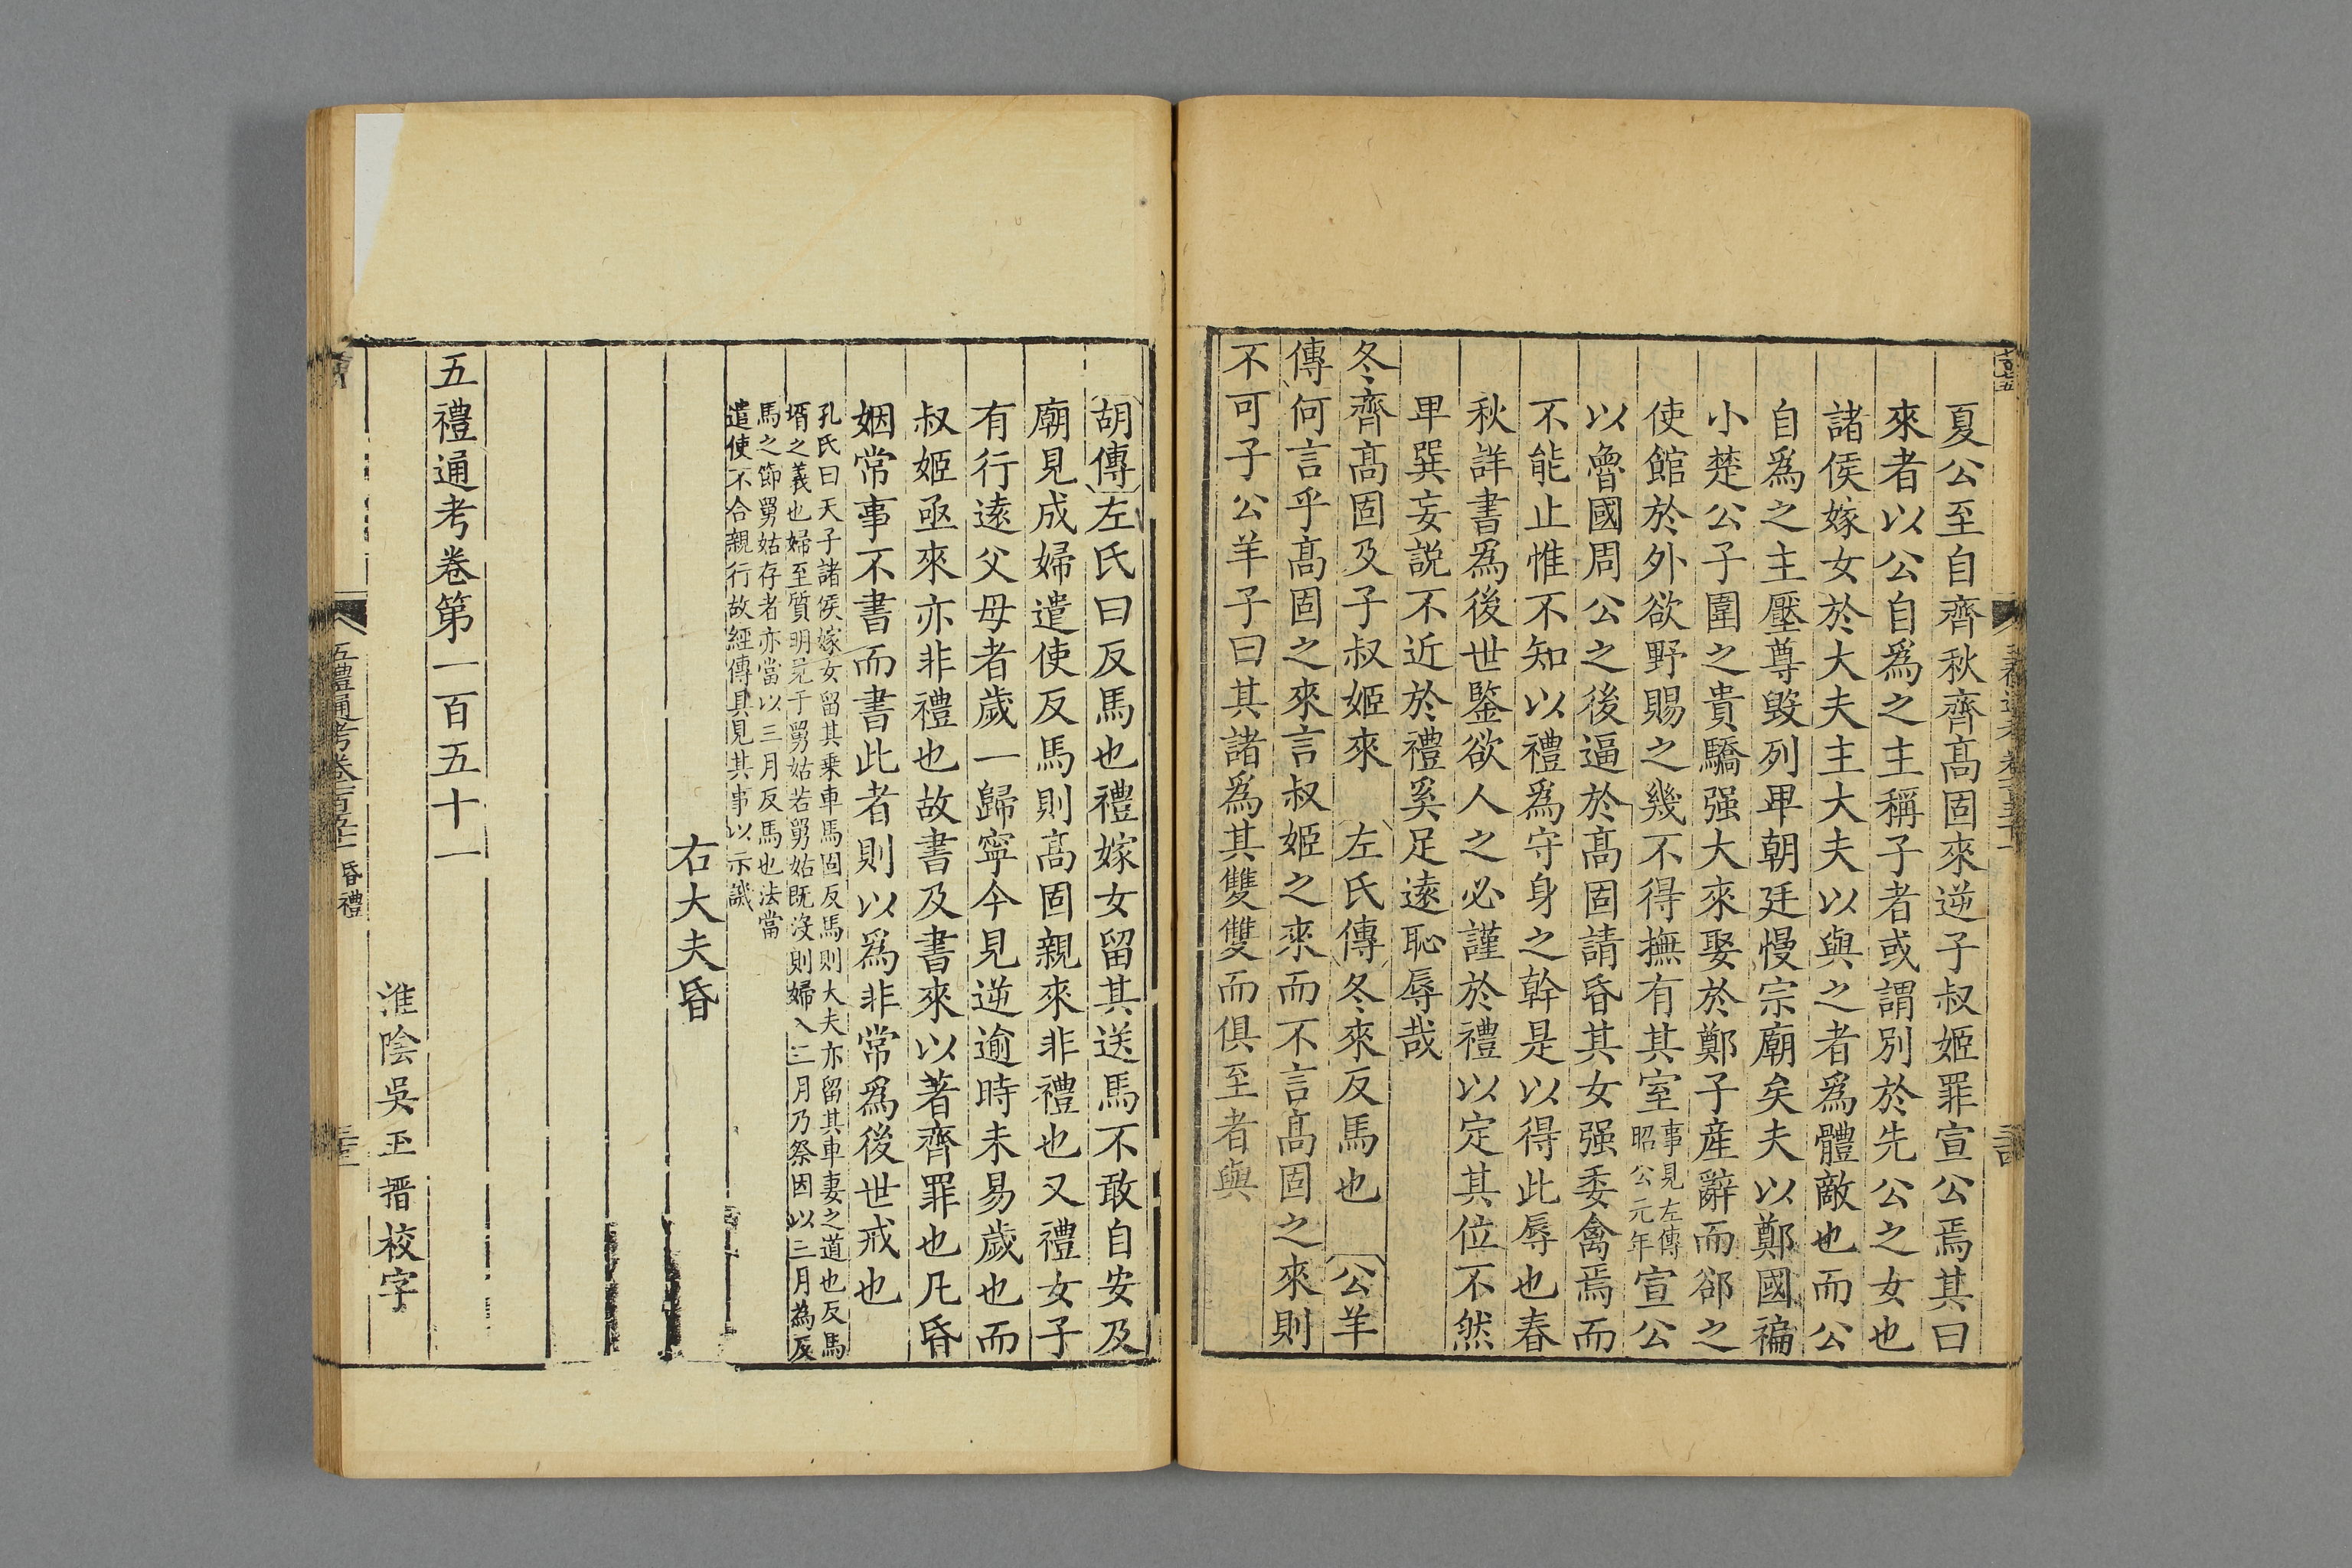 夏公至自齊秋齊髙固來逆子叔姬罪宣公焉其曰
來者以公自爲之主稱子者或謂別於先公之女也
諸侯嫁女於大夫主大夫以與之者爲體敵也而公
自爲之主壓尊毀列卑朝廷慢宗廟矣夫以鄭國褊
小楚公子圍之貴驕强大來娶於鄭子產辭而郤之
使館於外欲野賜之幾不得撫有其室事見左傳昭公元年宣公
以魯國周公之後逼於髙固請昏其女强委禽焉而
不能止惟不知以禮爲守身之幹是以得此辱也春
秋詳書爲後世鑒欲人之必謹於禮以定其位不然
卑巽妄説不近於禮奚足遠恥辱哉
冬齊髙固及子叔姬來　左氏傳冬來反馬也　公羊
傳何言乎髙固之來言叔姬之來而不言髙固之來則
不可子公羊子曰其諸爲其雙雙而俱至者與
胡傳左氏曰反馬也禮嫁女留其送馬不敢自安及
廟見成婦遣使反馬則髙固親來非禮也又禮女子
有行遠父母者歲一歸寧今見逆逾時未易歲也而
叔姬亟來亦非禮也故書及書來以著齊罪也凡昏
姻常事不書而書此者則以爲非常爲後世戒也
孔氏曰天子諸侯嫁女留其乗車馬固反馬則大夫亦留其車妻之道也反馬
壻之義也婦至質明見于舅姑若舅姑既沒則婦入三月乃祭因以三月為反
馬之節舅姑存者亦當以三月反馬也法當
遣使不合親行故經傳具見其事以示譏
右大夫昏
五禮通考卷第一百五十一
淮陰吳玉搢校字
五禮通考卷一百五十一 昏禮